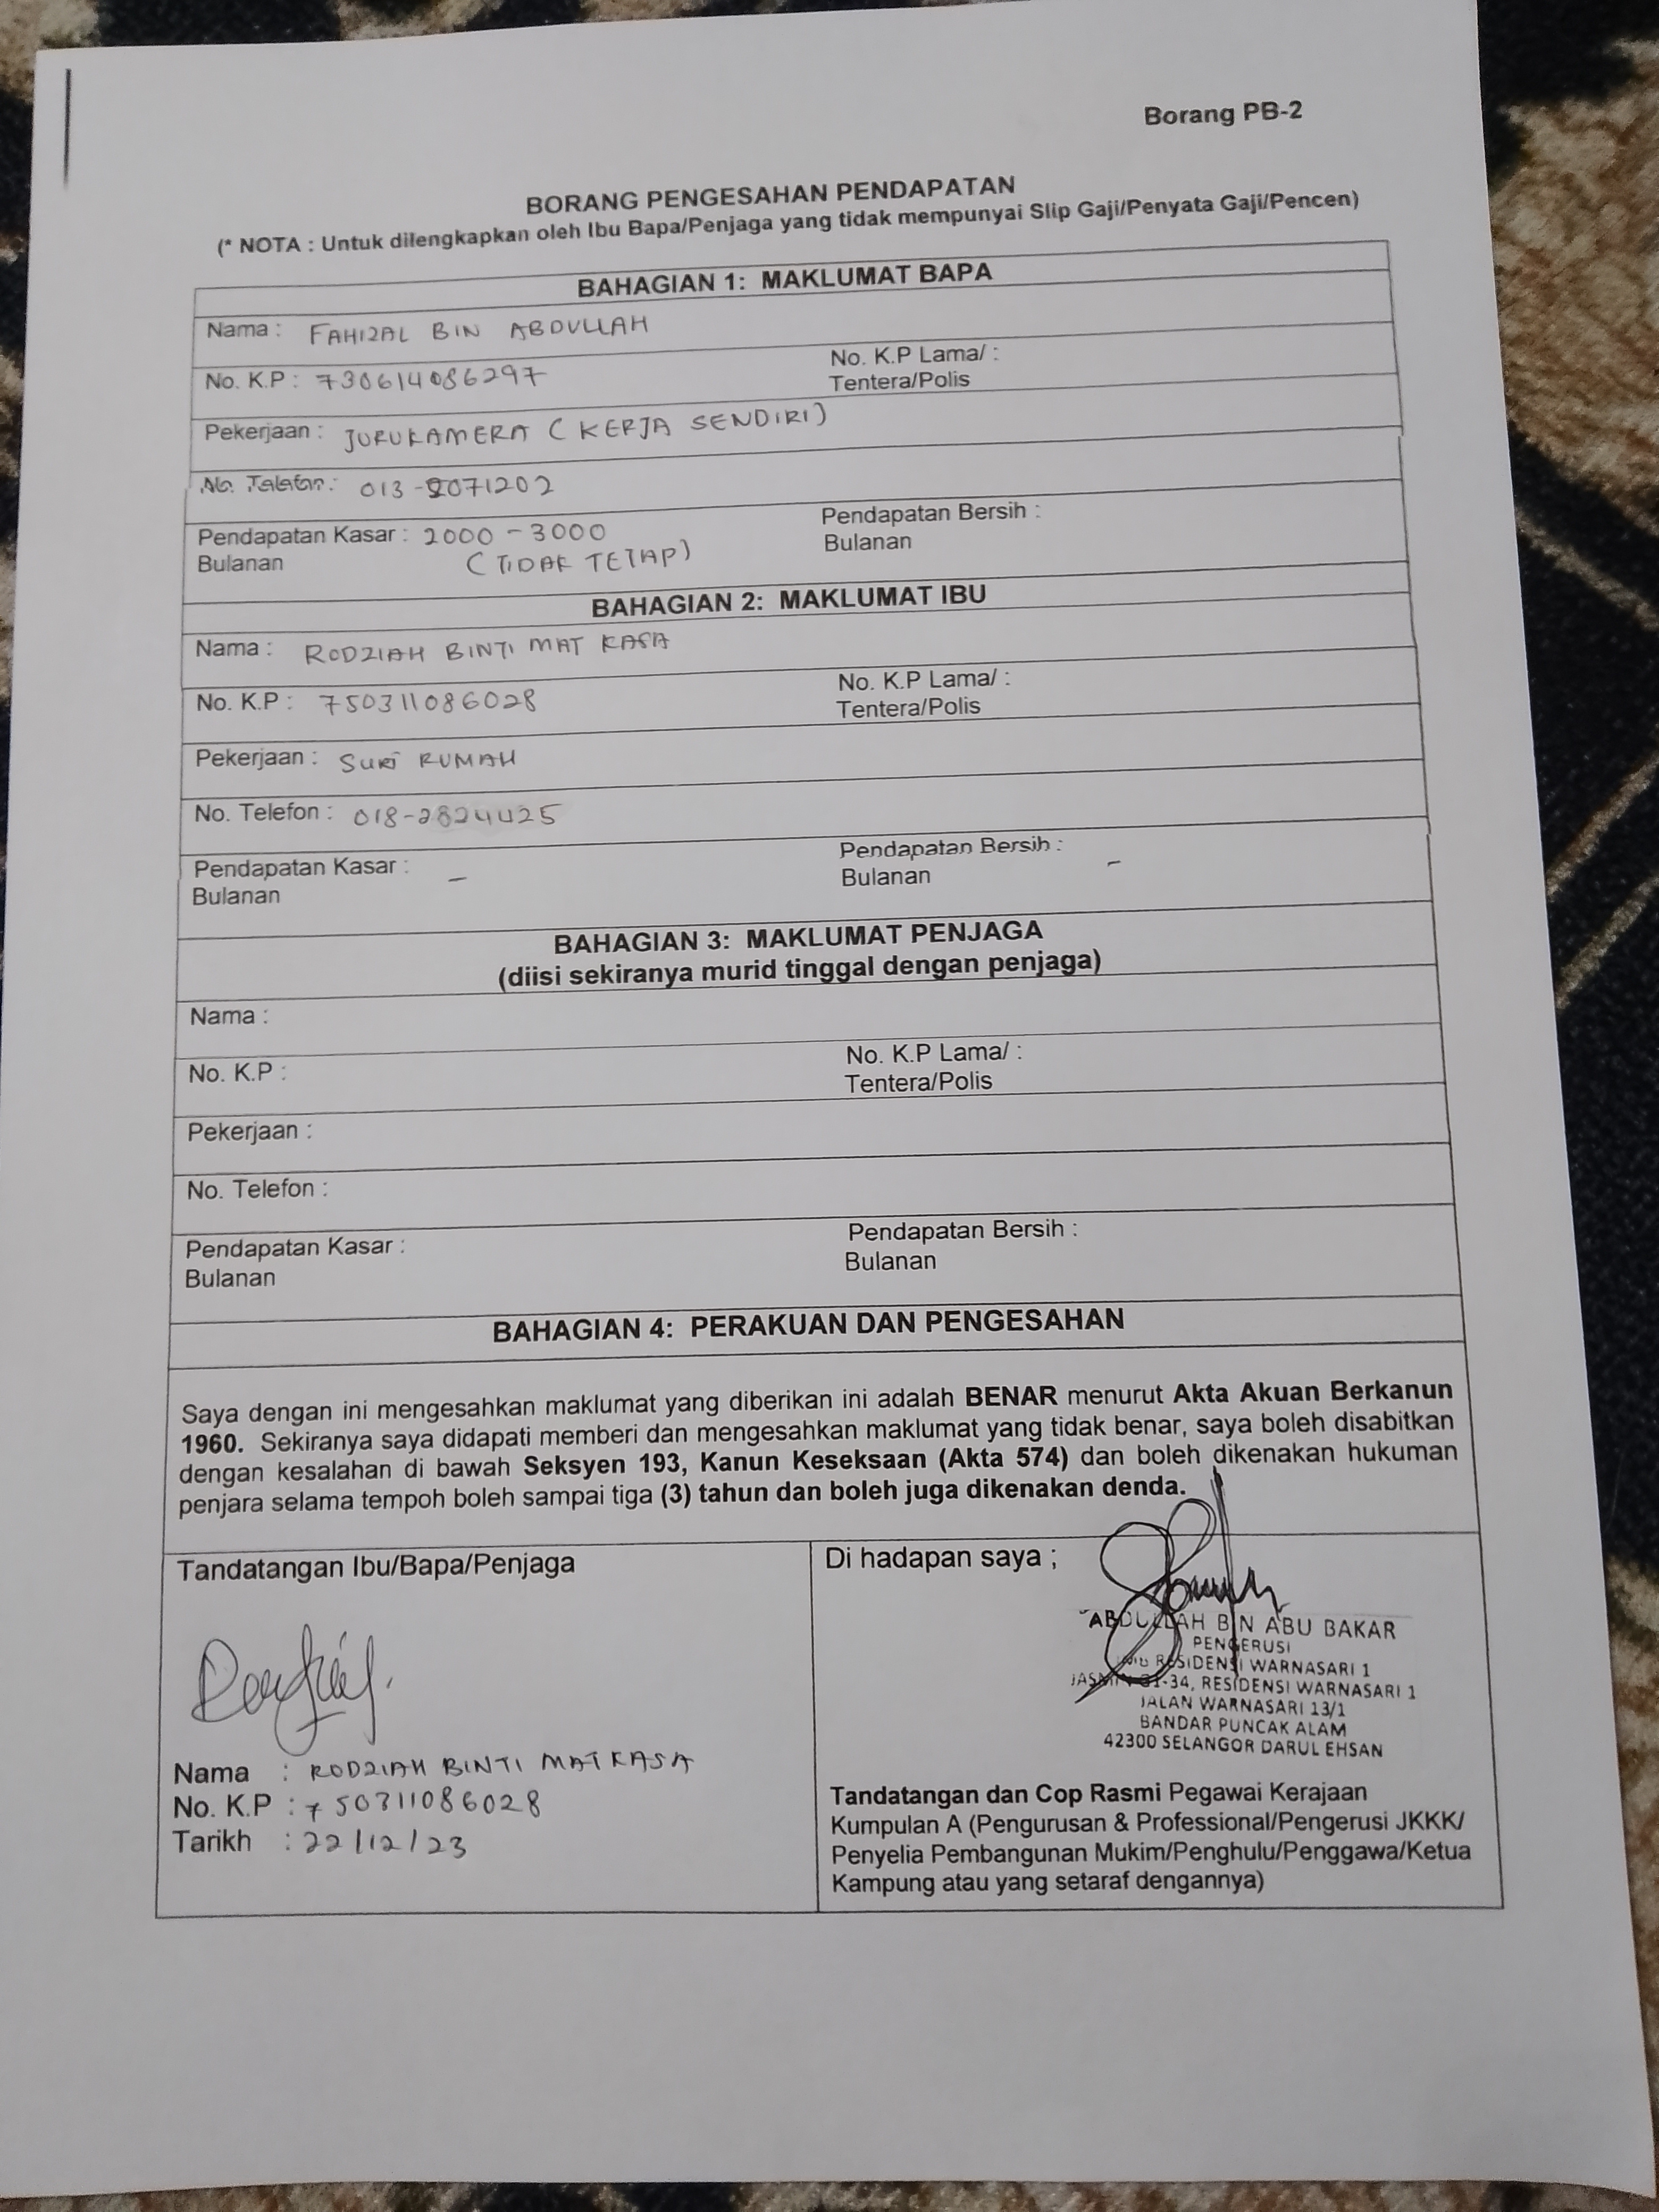 Borang PB-2
BORANG PENGESAHAN PENDAPATAN
(* NOTA : Untuk dilengkapkan oleh Ibu Bapa/Penjaga yang tidak mempunyai Slip Gaji/Penyata Gaji/Pencen)
BAHAGIAN 1: MAKLUMAT BAPA
Nama : FAHIZAL BIN ABDULLAH
No. K.P : 730614086297 No. K.P Lama/ :
Tentera/Polis
Pekerjaan : JURUKAMERA ( KERJA SENDIRI)
No. Telefon : 013-2071202
Pendapatan Kasar : 2000 - 3000 Pendapatan Bersih :
Bulanan (TIDAK TETAP) Bulanan
BAHAGIAN 2: MAKLUMAT IBU
Nama : RODZIAH BINTI MAT KASA
No. K.P : 750311086028 No. K.P Lama/ :
Tentera/Polis
Pekerjaan : SURI RUMAH
No. Telefon : 018-2824425
Pendapatan Kasar : - Pendapatan Bersih : -
Bulanan Bulanan
BAHAGIAN 3: MAKLUMAT PENJAGA
(diisi sekiranya murid tinggal dengan penjaga)
Nama :
No. K.P : No. K.P Lama/ :
Tentera/Polis
Pekerjaan :
No. Telefon :
Pendapatan Kasar : Pendapatan Bersih :
Bulanan Bulanan
BAHAGIAN 4: PERAKUAN DAN PENGESAHAN
Saya dengan ini mengesahkan maklumat yang diberikan ini adalah BENAR menurut Akta Akuan Berkanun
1960. Sekiranya saya didapati memberi dan mengesahkan maklumat yang tidak benar, saya boleh disabitkan
dengan kesalahan di bawah Seksyen 193, Kanun Keseksaan (Akta 574) dan boleh dikenakan hukuman
penjara selama tempoh boleh sampai tiga (3) tahun dan boleh juga dikenakan denda.
Tandatangan Ibu/Bapa/Penjaga
Nama : RODZIAH BINTI MAT KASA
No. K.P : 750311086028
Tarikh : 22/12/23
Di hadapan saya ;
ABDULLAH BIN ABU BAKAR
PENGERUSI
RESIDENSI WARNASARI 1
34, RESIDENSI WARNASARI 1
JALAN WARNASARI 13/1
BANDAR PUNCAK ALAM
42300 SELANGOR DARUL EHSAN
Tandatangan dan Cop Rasmi Pegawai Kerajaan
Kumpulan A (Pengurusan & Professional/Pengerusi JKKK/
Penyelia Pembangunan Mukim/Penghulu/Penggawa/Ketua
Kampung atau yang setaraf dengannya)